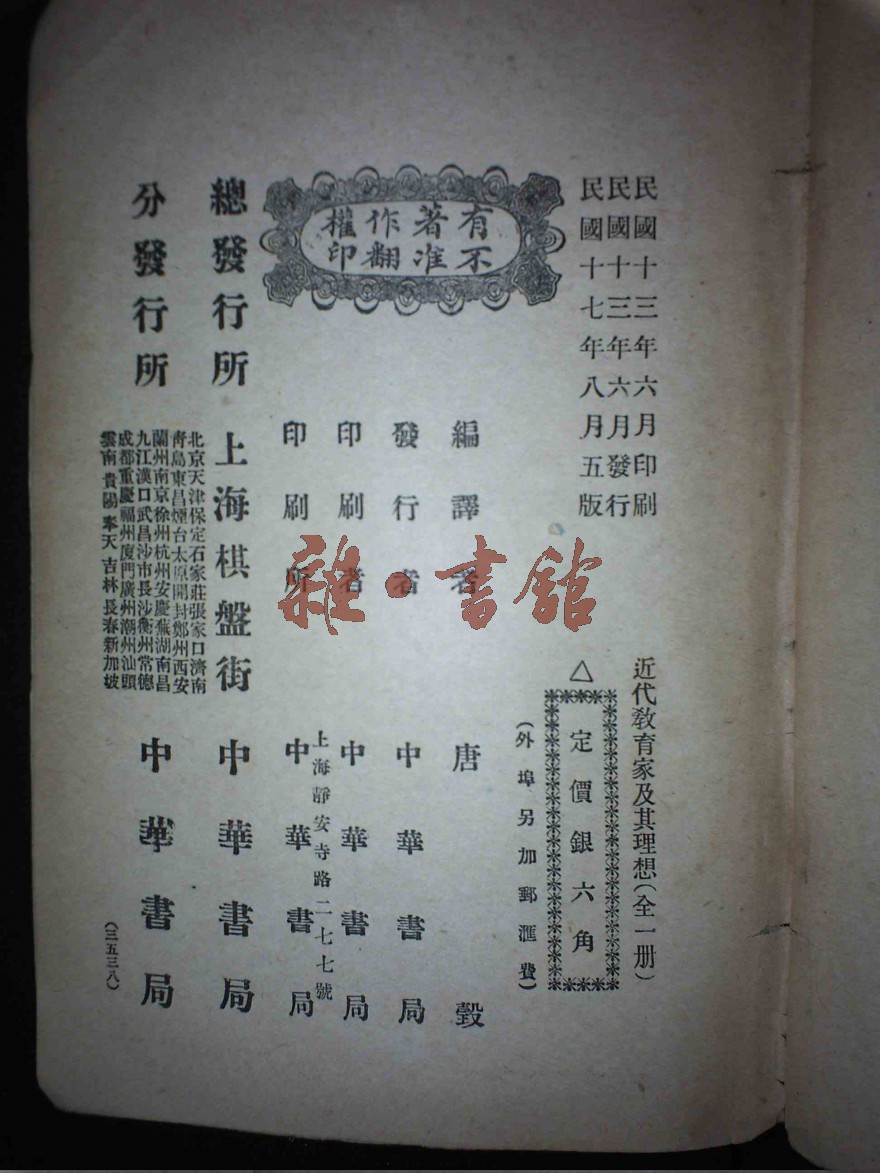 民國十三年六月印刷
民國十三年六月發行
民國十七年八月五版
近代教育家及其理想(全一册)
△定價銀六角
(外埠另加郵滙費)
有著作權
不准翻印
編譯者 唐㲄
發行者 中華書局
印刷者 中華書局
上海靜安寺路二七七號
印刷所 中華書局
總發行所 上海棋盤街 中華書局
分發行所 中華書局
北京天津保定石家莊張家口濟南
靑島東昌煙台太原開封鄭州西安
蘭州南京徐州杭州安慶蕪湖南昌
九江漢口武昌沙市長沙衡州常德
成都重慶福州廈門廣州潮州汕頭
雲南貴陽奉天吉林長春新加坡
(三五三八)
雜·書館